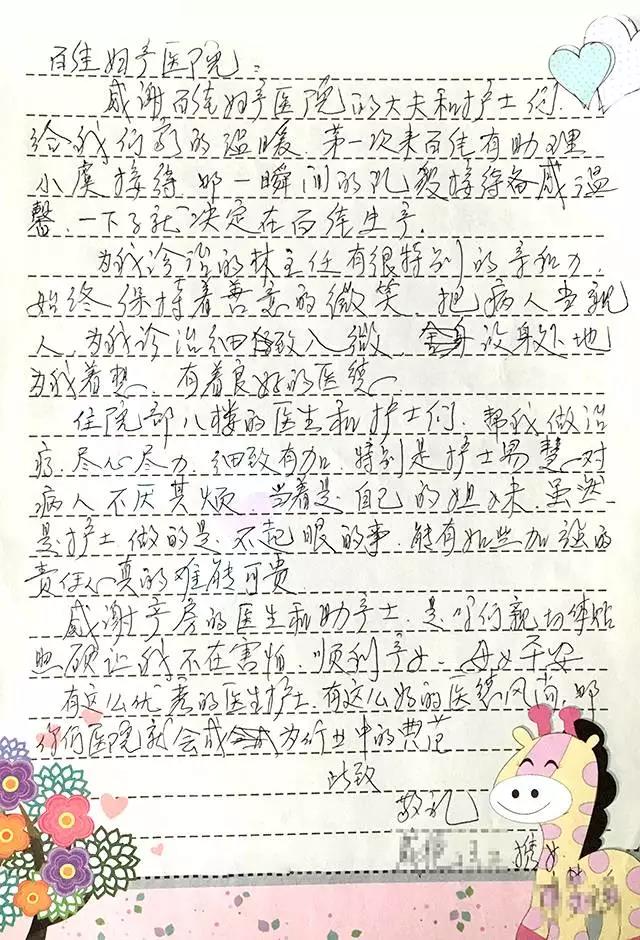 百佳妇产医院：
感谢百佳妇产医院的大夫和护士们，
给我们家的温暖。第一次来百佳有助理
小虞接待那一瞬间的礼貌接待备感温
馨、一下子就决定在百佳生产。
为我诊治的林主任有很特别的亲和力，
始终保持着善意的微笑、把病人当亲
人、为我诊治细致入微、设身处地
为我着想、有着良好的医德。
住院部八楼的医生和护士们、帮我做治
疗、尽心尽力、细致有加、特别是护士易慧对
病人不厌其烦、当着是自己的姐妹、虽然
是护士、做的是不起眼的事、能有如此加强的
责任心真的难能可贵
感谢产房的医生和助产士、是你们亲切体贴
照顾让我不在害怕、顺利产女、母女平安
有这么优秀的医生护士、有这么好的医德风尚、那
你们医院就会成为行业中的典范
此致
敬礼
携女